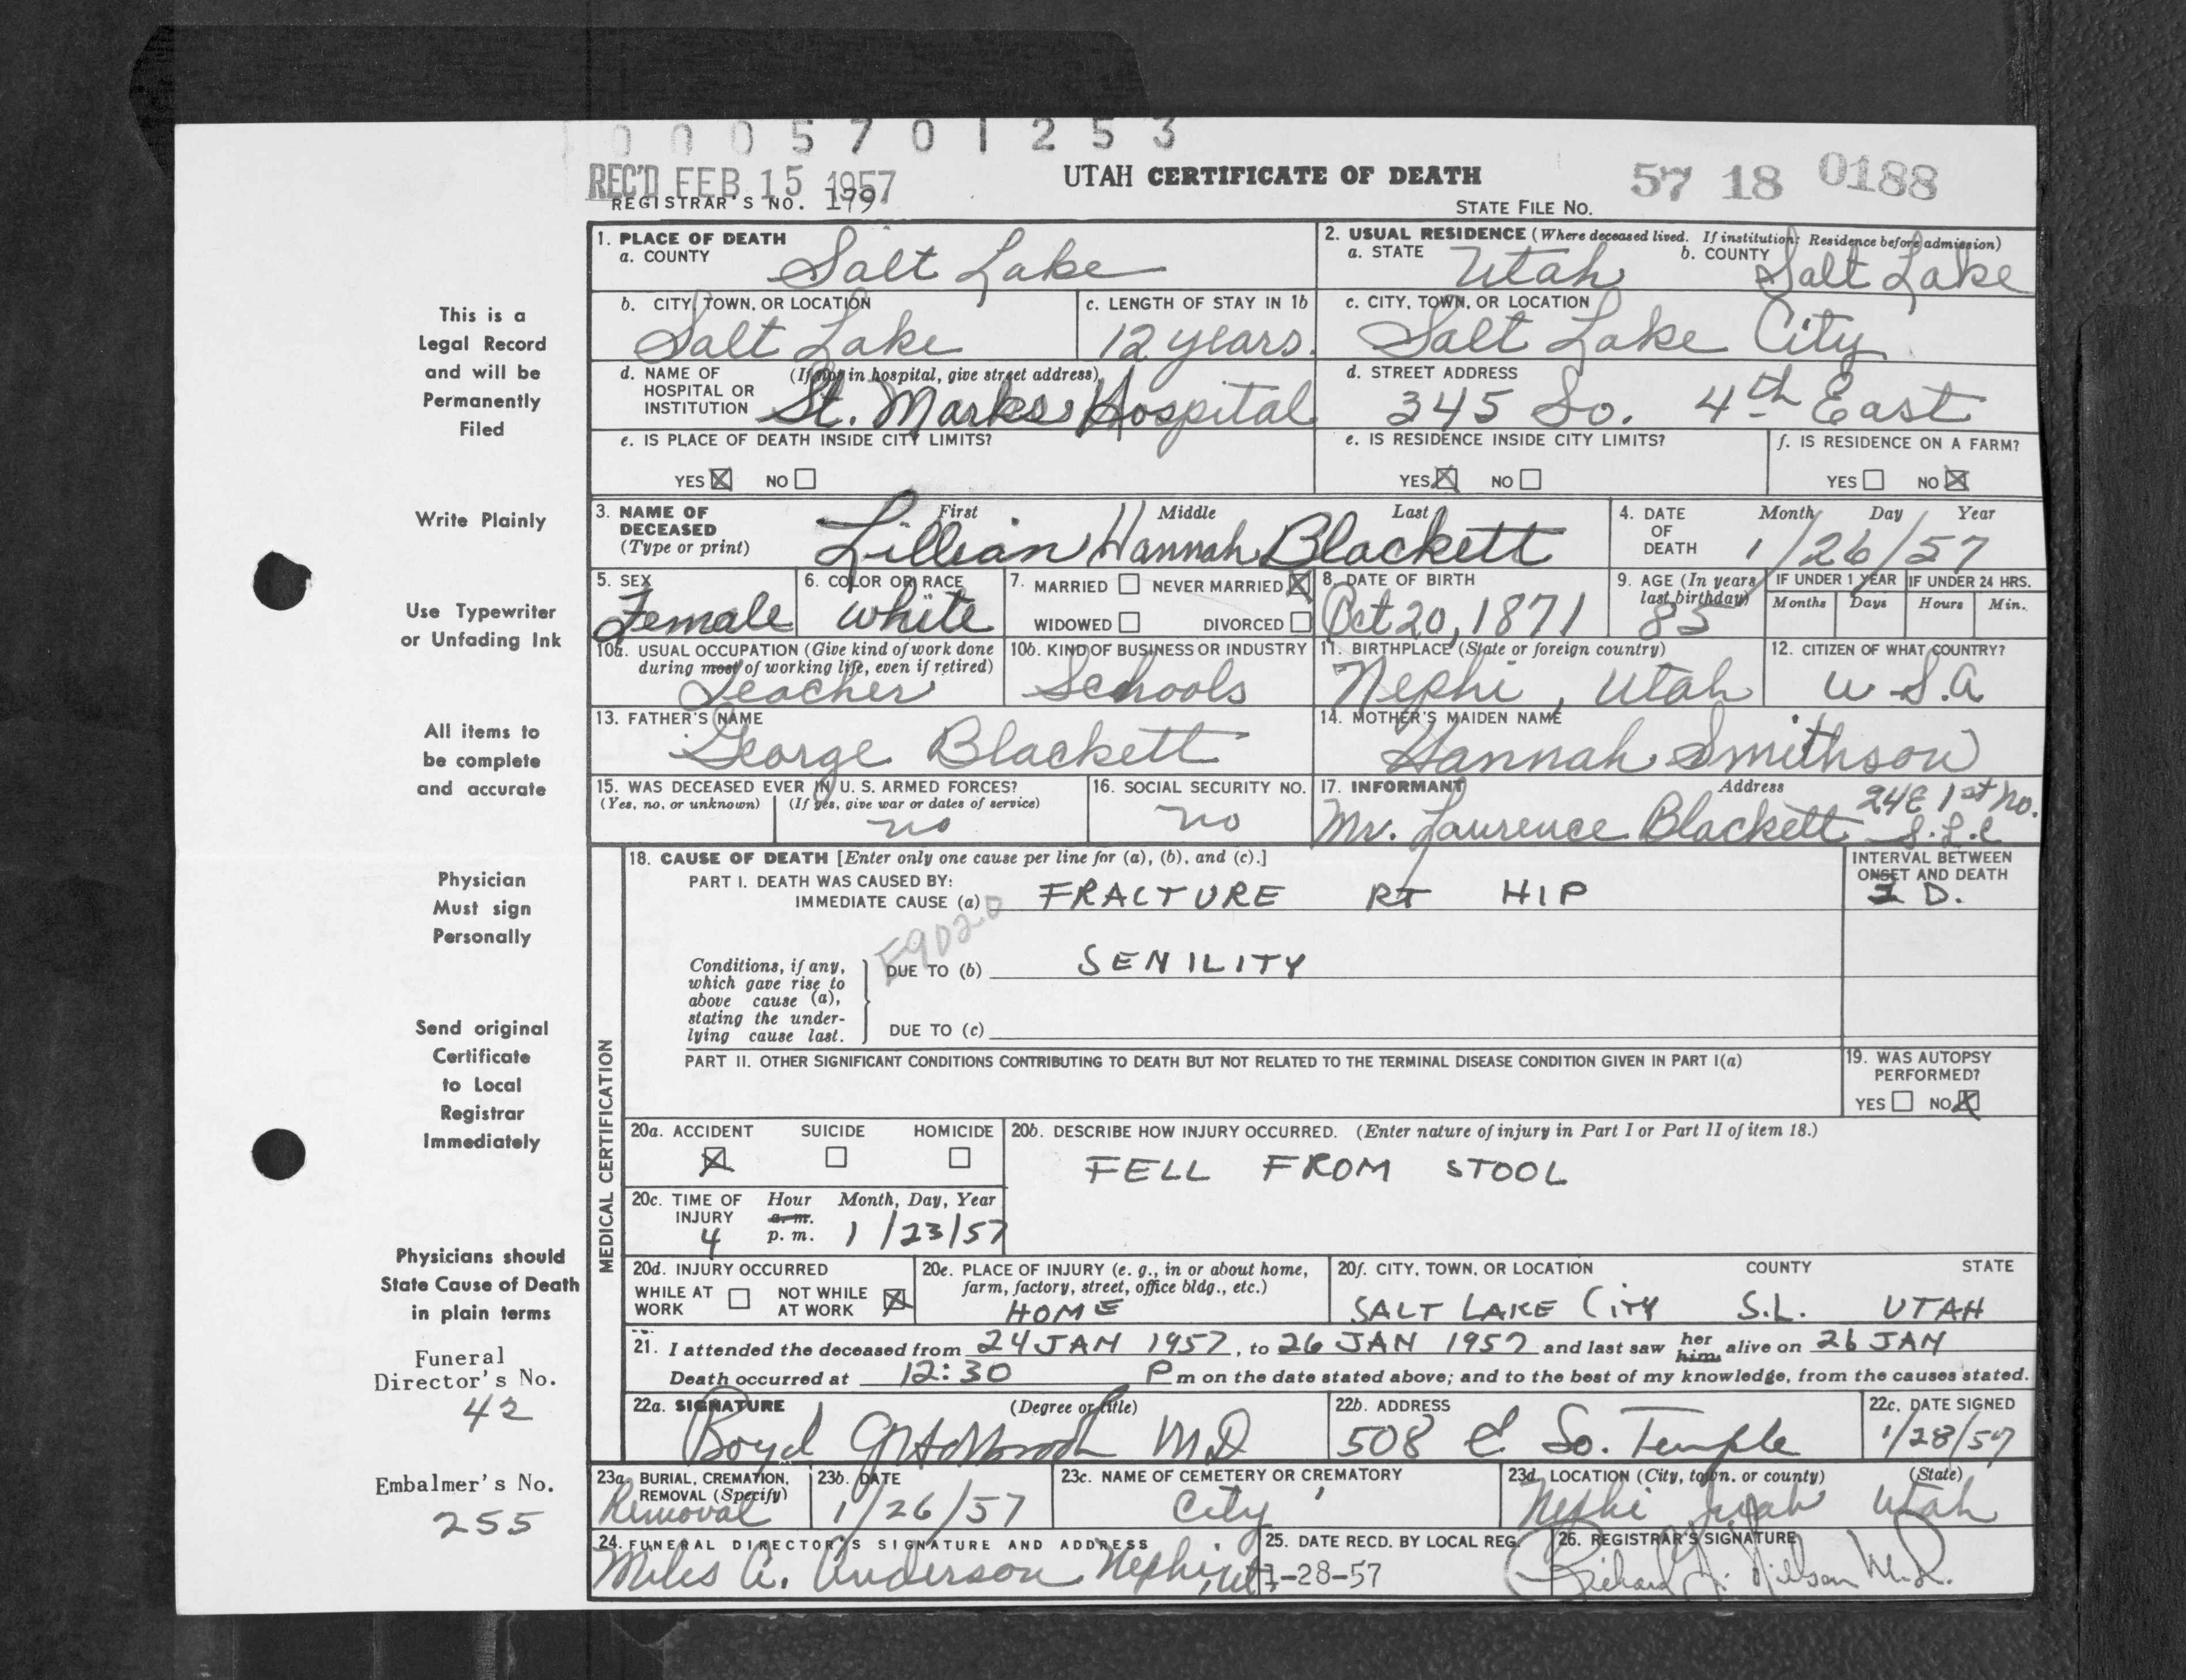 0005701253
REC'D FEB 15 1957
UTAH CERTIFICATE OF DEATH
57 18 0188
REGISTRAR'S NO. 179
STATE FILE NO.
This is a
Legal Record
and will be
Permanently
Filed
Write Plainly
Use Typewriter
or Unfading Ink
All items to
be complete
and accurate
Physician
Must sign
Personally
Send original
Certificate
to Local
Registrar
Immediately
Physicians should
State Cause of Death
in plain terms
Funeral
Director's No.
42
Embalmer's No.
255
1. PLACE OF DEATH
a. COUNTY Salt Lake
2. USUAL RESIDENCE (Where deceased lived. If institution: Residence before admission)
a. STATE Utah b. COUNTY Salt Lake
b. CITY, TOWN, OR LOCATION Salt Lake
c. LENGTH OF STAY IN 1b 12 years.
c. CITY, TOWN, OR LOCATION Salt Lake City
d. NAME OF HOSPITAL OR INSTITUTION (If not in hospital, give street address) St. Marks Hospital
d. STREET ADDRESS 345 So. 4th East
e. IS PLACE OF DEATH INSIDE CITY LIMITS?
YES ☒ NO ☐
e. IS RESIDENCE INSIDE CITY LIMITS?
YES ☒ NO ☐
f. IS RESIDENCE ON A FARM?
YES ☐ NO ☒
3. NAME OF DECEASED (Type or print) First Middle Last
Lillian Hannah Blackett
4. DATE OF DEATH Month Day Year
1/26/57
5. SEX Female
6. COLOR OR RACE white
7. MARRIED ☐ NEVER MARRIED ☒
WIDOWED ☐ DIVORCED ☐
8. DATE OF BIRTH Oct 20, 1871
9. AGE (In years last birthday) 85
IF UNDER 1 YEAR Months Days
IF UNDER 24 HRS. Hours Min.
10a. USUAL OCCUPATION (Give kind of work done during most of working life, even if retired) Teacher
10b. KIND OF BUSINESS OR INDUSTRY Schools
11. BIRTHPLACE (State or foreign country) Nephi, Utah
12. CITIZEN OF WHAT COUNTRY? U.S.A
13. FATHER'S NAME George Blackett
14. MOTHER'S MAIDEN NAME Hannah Smithson
15. WAS DECEASED EVER IN U. S. ARMED FORCES?
(Yes, no, or unknown) (If yes, give war or dates of service) no
16. SOCIAL SECURITY NO. no
17. INFORMANT Address
Mr. Laurence Blackett 24 E 1st No. S.L.C
MEDICAL CERTIFICATION
18. CAUSE OF DEATH [Enter only one cause per line for (a), (b), and (c).]
PART I. DEATH WAS CAUSED BY:
IMMEDIATE CAUSE (a) FRACTURE RT HIP
INTERVAL BETWEEN ONSET AND DEATH
D.
E902.0
Conditions, if any, which gave rise to above cause (a), stating the underlying cause last.
DUE TO (b) SENILITY
DUE TO (c)
PART II. OTHER SIGNIFICANT CONDITIONS CONTRIBUTING TO DEATH BUT NOT RELATED TO THE TERMINAL DISEASE CONDITION GIVEN IN PART I(a)
19. WAS AUTOPSY PERFORMED?
YES ☐ NO ☒
20a. ACCIDENT ☒ SUICIDE ☐ HOMICIDE ☐
20b. DESCRIBE HOW INJURY OCCURRED. (Enter nature of injury in Part I or Part II of item 18.)
FELL FROM STOOL
20c. TIME OF INJURY Hour a. m. p. m. Month, Day, Year
4 1/23/57
20d. INJURY OCCURRED
WHILE AT WORK ☐ NOT WHILE AT WORK ☒
20e. PLACE OF INJURY (e. g., in or about home, farm, factory, street, office bldg., etc.)
HOME
20f. CITY, TOWN, OR LOCATION COUNTY STATE
SALT LAKE CITY S.L. UTAH
21. I attended the deceased from 24 JAN 1957, to 26 JAN 1957 and last saw her him alive on 26 JAN
Death occurred at 12:30 P m on the date stated above; and to the best of my knowledge, from the causes stated.
22a. SIGNATURE (Degree or title)
Boyd MD
22b. ADDRESS 508 E So. Temple
22c. DATE SIGNED 1/28/57
23a. BURIAL, CREMATION, REMOVAL (Specify) Removal
23b. DATE 1/26/57
23c. NAME OF CEMETERY OR CREMATORY City
23d. LOCATION (City, town, or county) (State)
Nephi Juab Utah
24. FUNERAL DIRECTOR'S SIGNATURE AND ADDRESS
Miles A. Anderson Nephi, Ut
25. DATE RECD. BY LOCAL REG. 1-28-57
26. REGISTRAR'S SIGNATURE
Richard Nilson M.D.